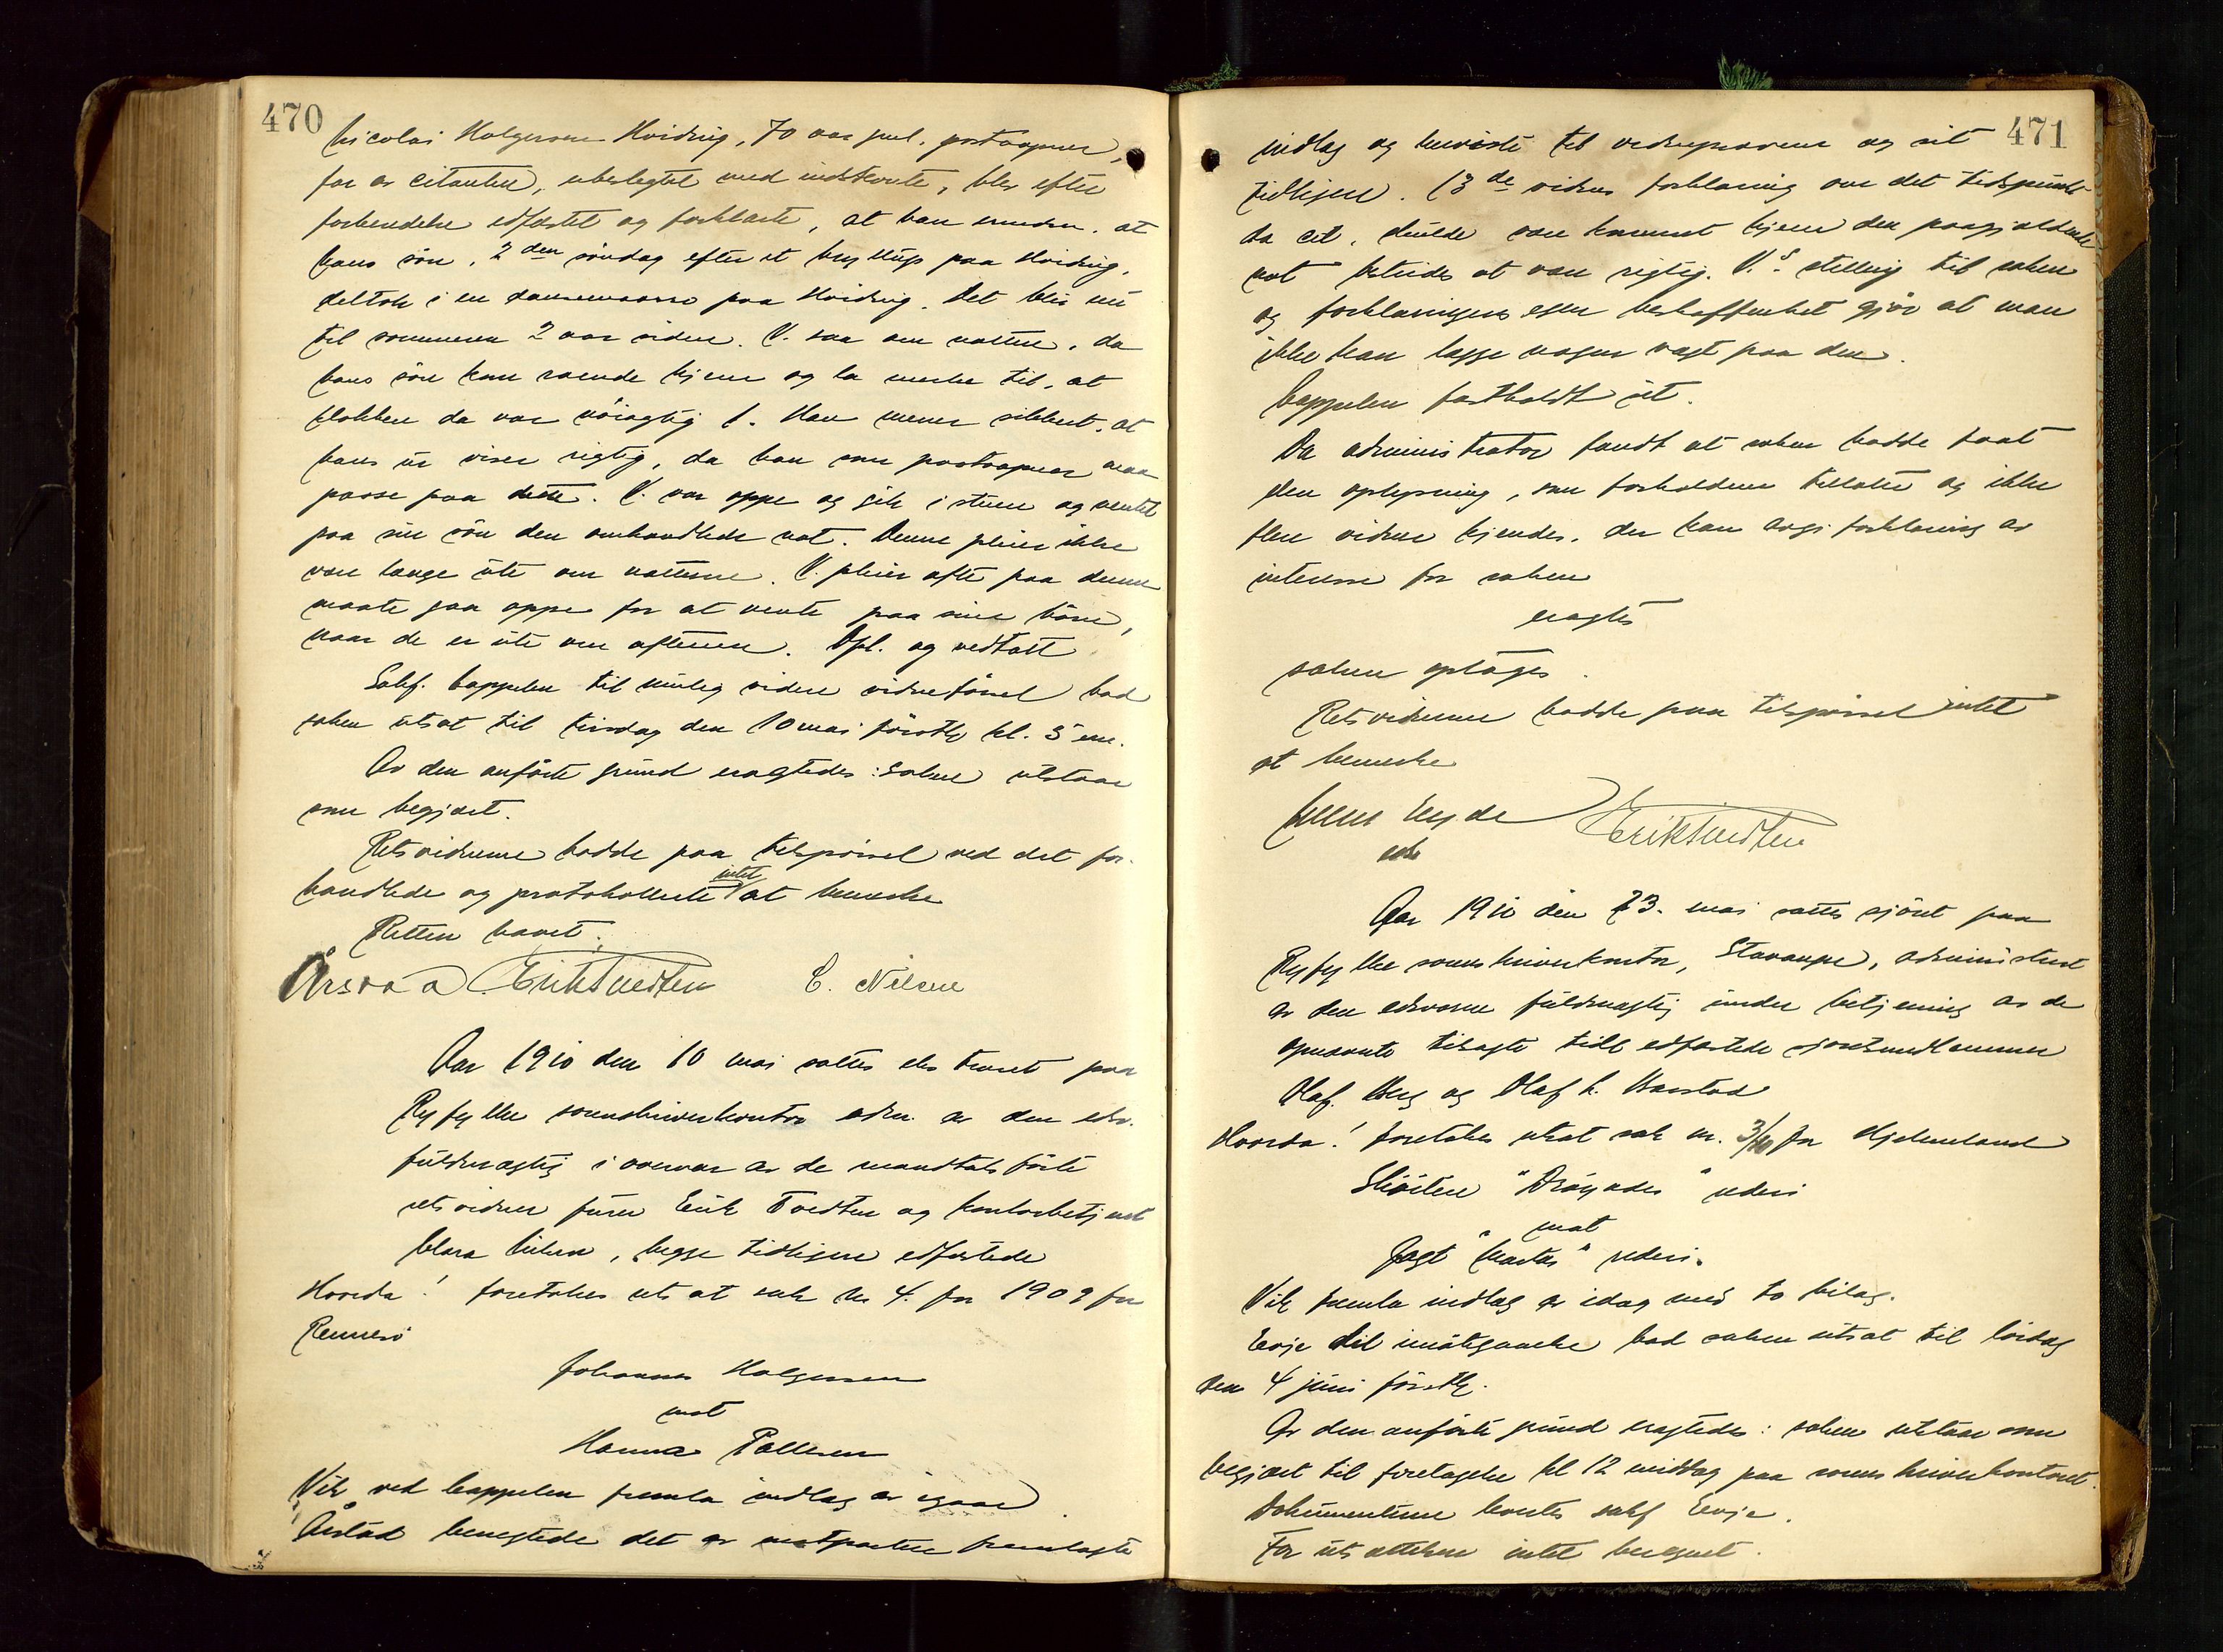 470
Nicolai Holgersen Hvidnig, 70 aar gml. postaapner,
far av citanten, ubeslegtet med indstevnte, blev efter
forberedelse edfæstet og forklarte, at han mindes, at
hans søn, 2den søndag efter et bryllup paa Hvidnig,
deltok i en dansemoro paa Hvidnig. Det blir nu
til sommeren 2 aar siden. V. saa om natten, da
hans søn kom roende hjem og la merke til, at
klokken da var nøiagtig 1. Han mener sikkert, at
hans ur viser rigtig, da han som postaapner maa
passe paa dette. V. var oppe og gik i stuen og ventet
paa sin søn den omhandlede nat. Denne pleier ikke
være længe ute om natterne. V. pleier ofte paa denne
maate gaa oppe for at vente paa sine børn,
naar de er ute om aftenen. Opl. og vedtatt
Sakf. Cappelen til mulig videre vidneførsel bad
saken utsat til tirsdag den 10 mai førstk kl. 5 em.
Av den anførte grund eragtedes: Saken utstaar
som begjært.
Retsvidnerne hadde paa tilspørsel ved det for-
handlede og protokollerte intet at bemerke
Retten hævet.
Årsvaa Erik Tvedten C. Nilsen
Aar 1910 den 10 mai sattes ekstraret paa
Ryfylke sorenskriverkontor adm. av den edsv.
fuldmægtig i overvær av de mandtalsførte
retsvidner fører Erik Tvedten og kontorbetjent
Clara Nilsen, begge tidligere edfæstede
Hvorda! foretokes utsat sak nr 4. for 1909 fra
Rennesø
Johannes Holgersen
mot
Hanna Pallesen
Vik ved Cappelen fremla indlæg av igaar
Aarstad benegtede det av motparten fremlagte
471
indlæg og henviste til vidneprovene og sit
tidligere. 13de vidnes forklaring om det tidspunkt
da cit. skulde være kommet hjem den paagjældende
nat bestrides at være rigtig. V.s stilling til saken
og forklaringens egen beskaffenhet gjør at man
ikke kan lægge nogen vægt paa den.
Cappelen fastholdt sit.
Da administrator fandt at saken hadde faat
den oplysning, som forholdene tillater og ikke
flere vidner kjendes, der kan avgi forklaring av
interesse for saken
eragtes
saken optages.
Retsvidnerne hadde paa tilspørsel intet
at bemerke
Erik Tvedten
Aar 1910 den 23. mai sattes sjøret paa
Ryfylke sorenskriverkontor, Stavanger, administrert
av den edsvorne fuldmægtig under betjening av de
opnævnte tilsagte tidl edfæstede sjøretsmedlemmer
Olaf Berg og Olaf L. Harstad
Hvorda! foretokes utsat sak nr. 3/10 fra Hjelmeland
Skøiten "Drøyades" rederi
mot
Jagt "Martas" rederi.
Vik fremla indlæg av idag med to bilag.
Evje til imøtegaaelse bad saken utsat til lørdag
den 4 juni førstk.
Av den anførte grund eragtedes: saken utstaar som
begjært til foretagelse kl 12 middag paa sorenskriverkontoret.
Dokumenterne laantes sakf Evje.
For utsættelsen intet beregnet.